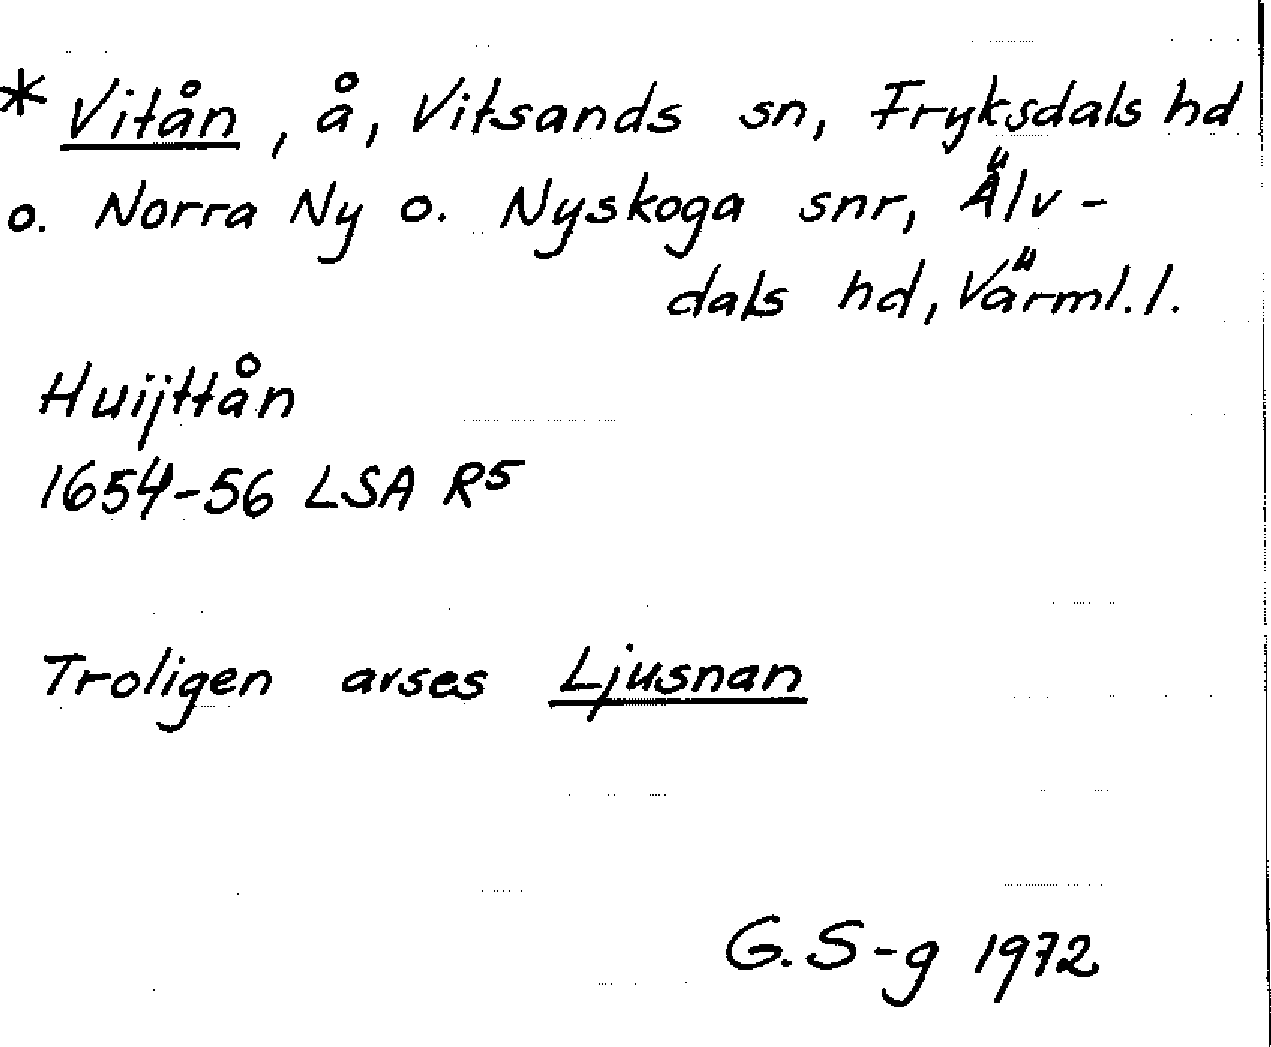 * Vitån, å, Vitsands sn, Fryksdals hd
o. Norra Ny o. Nyskoga snr, Älv-
dals hd, Värml. l.
Huijttån
1654-56 LSA R5
Troligen avses Ljusnan
G. S-g 1972